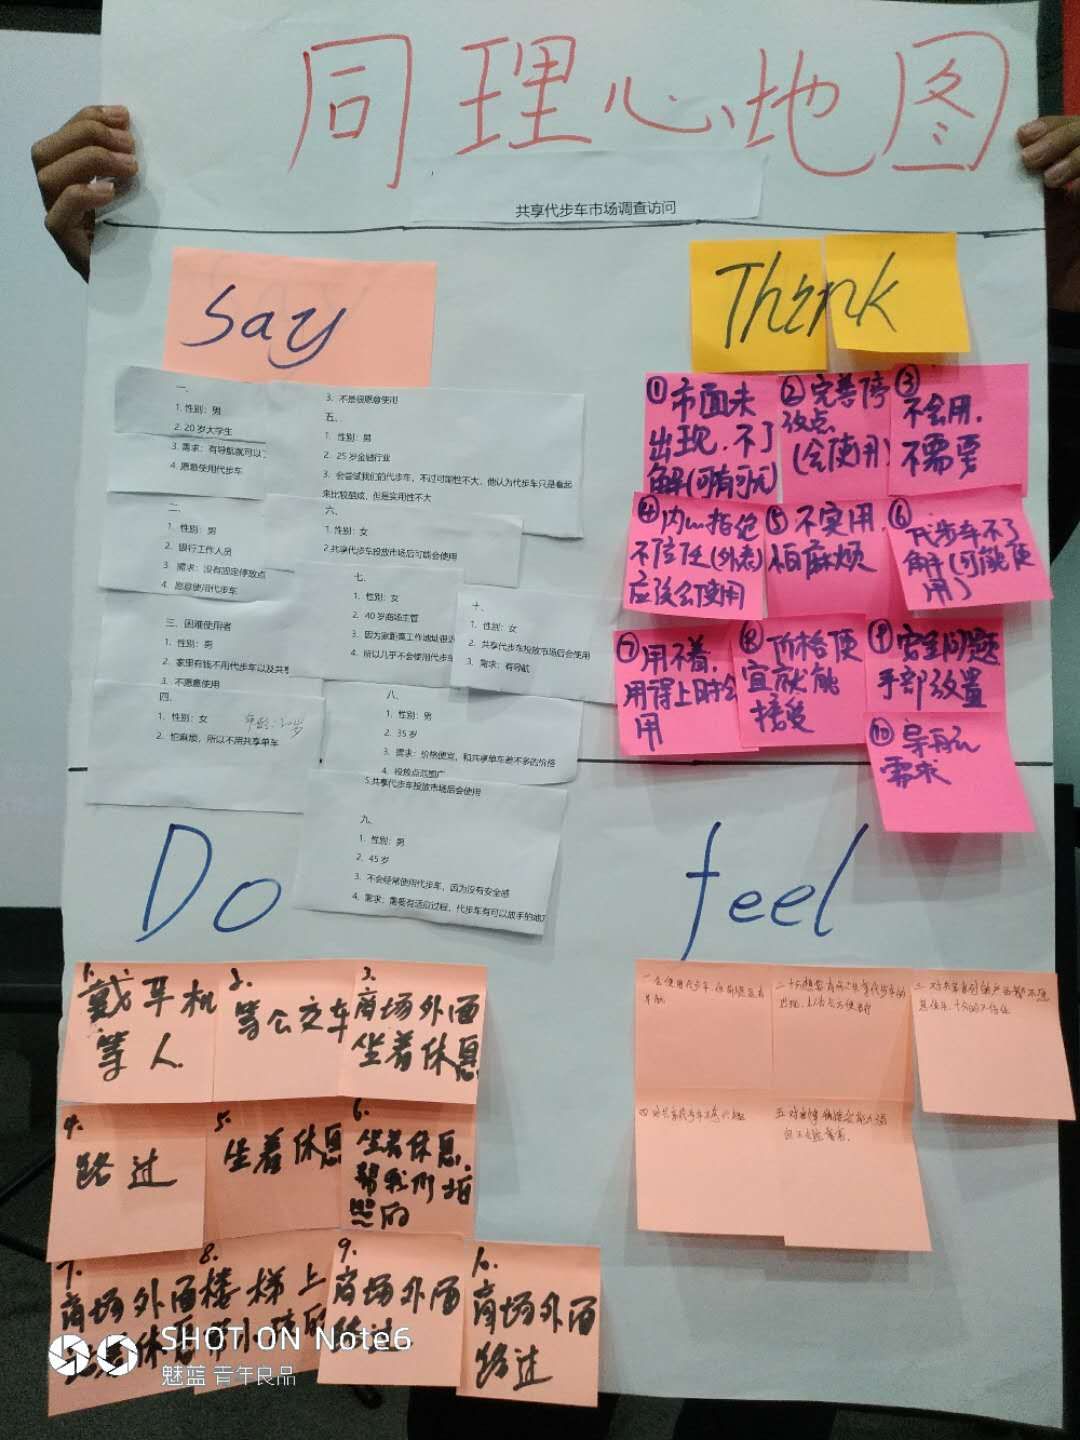 同理心地图
共享代步车市场调查访问
Say
一、
1. 性别：男
2. 20岁大学生
3. 需求：有导航就可以
4. 愿意使用代步车
二、
1. 性别：男
2. 银行工作人员
3. 需求：没有固定停放点
4. 愿意使用代步车
三、困难使用者
1. 性别：男
2. 家里有钱不用代步车以及共享
3. 不愿意使用
四、
1. 性别：女 年龄：30岁
2. 怕麻烦，所以不用共享单车
3. 不是很愿意使用
五、
1. 性别：男
2. 25岁金融行业
3. 会尝试我们的代步车，不过可能性不大，他认为代步车只是看起
来比较酷炫，但是实用性不大
六、
1. 性别：女
2.共享代步车投放市场后可能会使用
七、
1. 性别：女
2. 40岁商场主管
3. 因为家距离工作地址很近
4. 所以几乎不会使用代步车
八、
1. 性别：男
2. 35岁
3. 需求：价格便宜，和共享单车差不多的价格
4. 投放点范围广
5.共享代步车投放市场后会使用
九、
1. 性别：男
2. 45岁
3. 不会经常使用代步车，因为没有安全感
4. 需求：需要有适应过程，代步车有可以放手的地方
十、
1. 性别：女
2. 共享代步车投放市场后会使用
3. 需求：有导航
Think
①市面未
出现，不了
解(可有可无)
②完善停
放点
(会使用)
③
不会用，
不需要
④内心拒绝
不信任(外表)
应该会使用
⑤不实用，
怕麻烦
⑥
代步车不了
解(可能使
用)
⑦用不着，
用得上时会
用
⑧价格便
宜就能
接受
⑨安全问题
手部放置
⑩导航
需求
Do
1.
戴耳机
等人
2.
等公交车
3.
商场外面
坐着休息
4.
路过
5.
坐着休息
6.
坐着休息，
帮我们拍
照的
7.
商场外面
坐着休息
8.
楼梯上
带小孩的
9.
商场外面
路过
10.
商场外面
路过
feel
SHOT ON Note6
魅蓝 青年良品